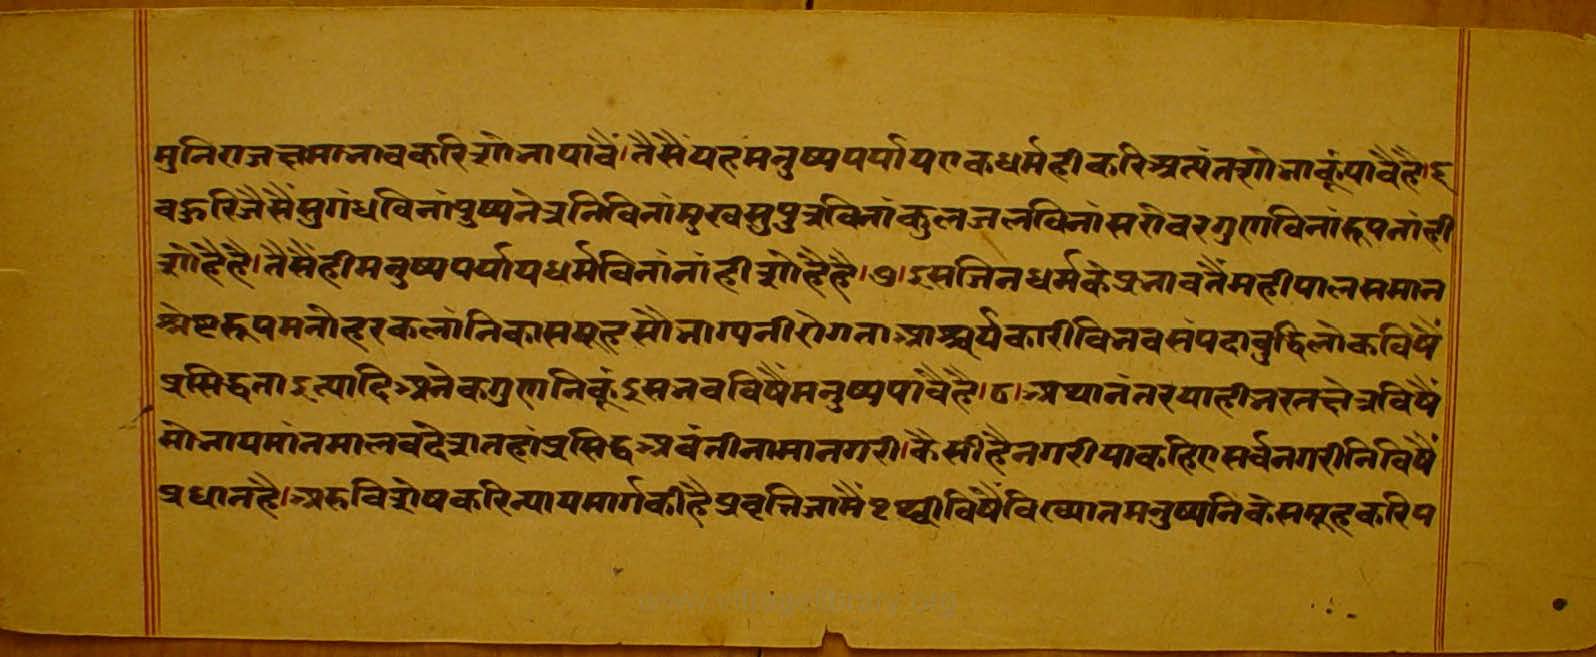 मुनिराजक्षमाभावकरिशोभापावैं।तैसैंयहमनुष्यपर्यायएकधर्महीकरिअत्यंतशोभाकूंपावैहै।६
बहुरिजैसैंसुगंधविनांपुष्पनेत्रनिविनांमुखसुपुत्रविनांकुलजलविनांसरोवरगुणविनांरूपनांही
शोहैहै।तैसैंहीमनुष्यपर्यायधर्मविनांनांहीशोहैहै।७।इसजिनधर्मकेप्रभावतैंमहीपालसमान
श्रेष्टरूपमनोहरकलांनिकासमूहसौभाग्यनीरोगताआश्चर्यकारीविभवसंपदाबुद्धिलोकविषैं
प्रसिद्धताइत्यादिअनेकगुणनिकूंइसभवविषैंमनुष्यपावैहै।८।अथानंतरयाहीभरतक्षेत्रविषैं
सोभायमांनमालवदेशतहांप्रसिद्धअवंतीनामानगरी।कैसीहैनगरीयाकहिएसर्वनगरीनिविषैं
प्रधानहै।अरुविशेषकरिन्यायमार्गकीहैप्रवृत्तिजामैंपृथ्वीविषैंविख्यातमनुष्यनिकेसमूहकरिप
www.vitragvlibrary.org